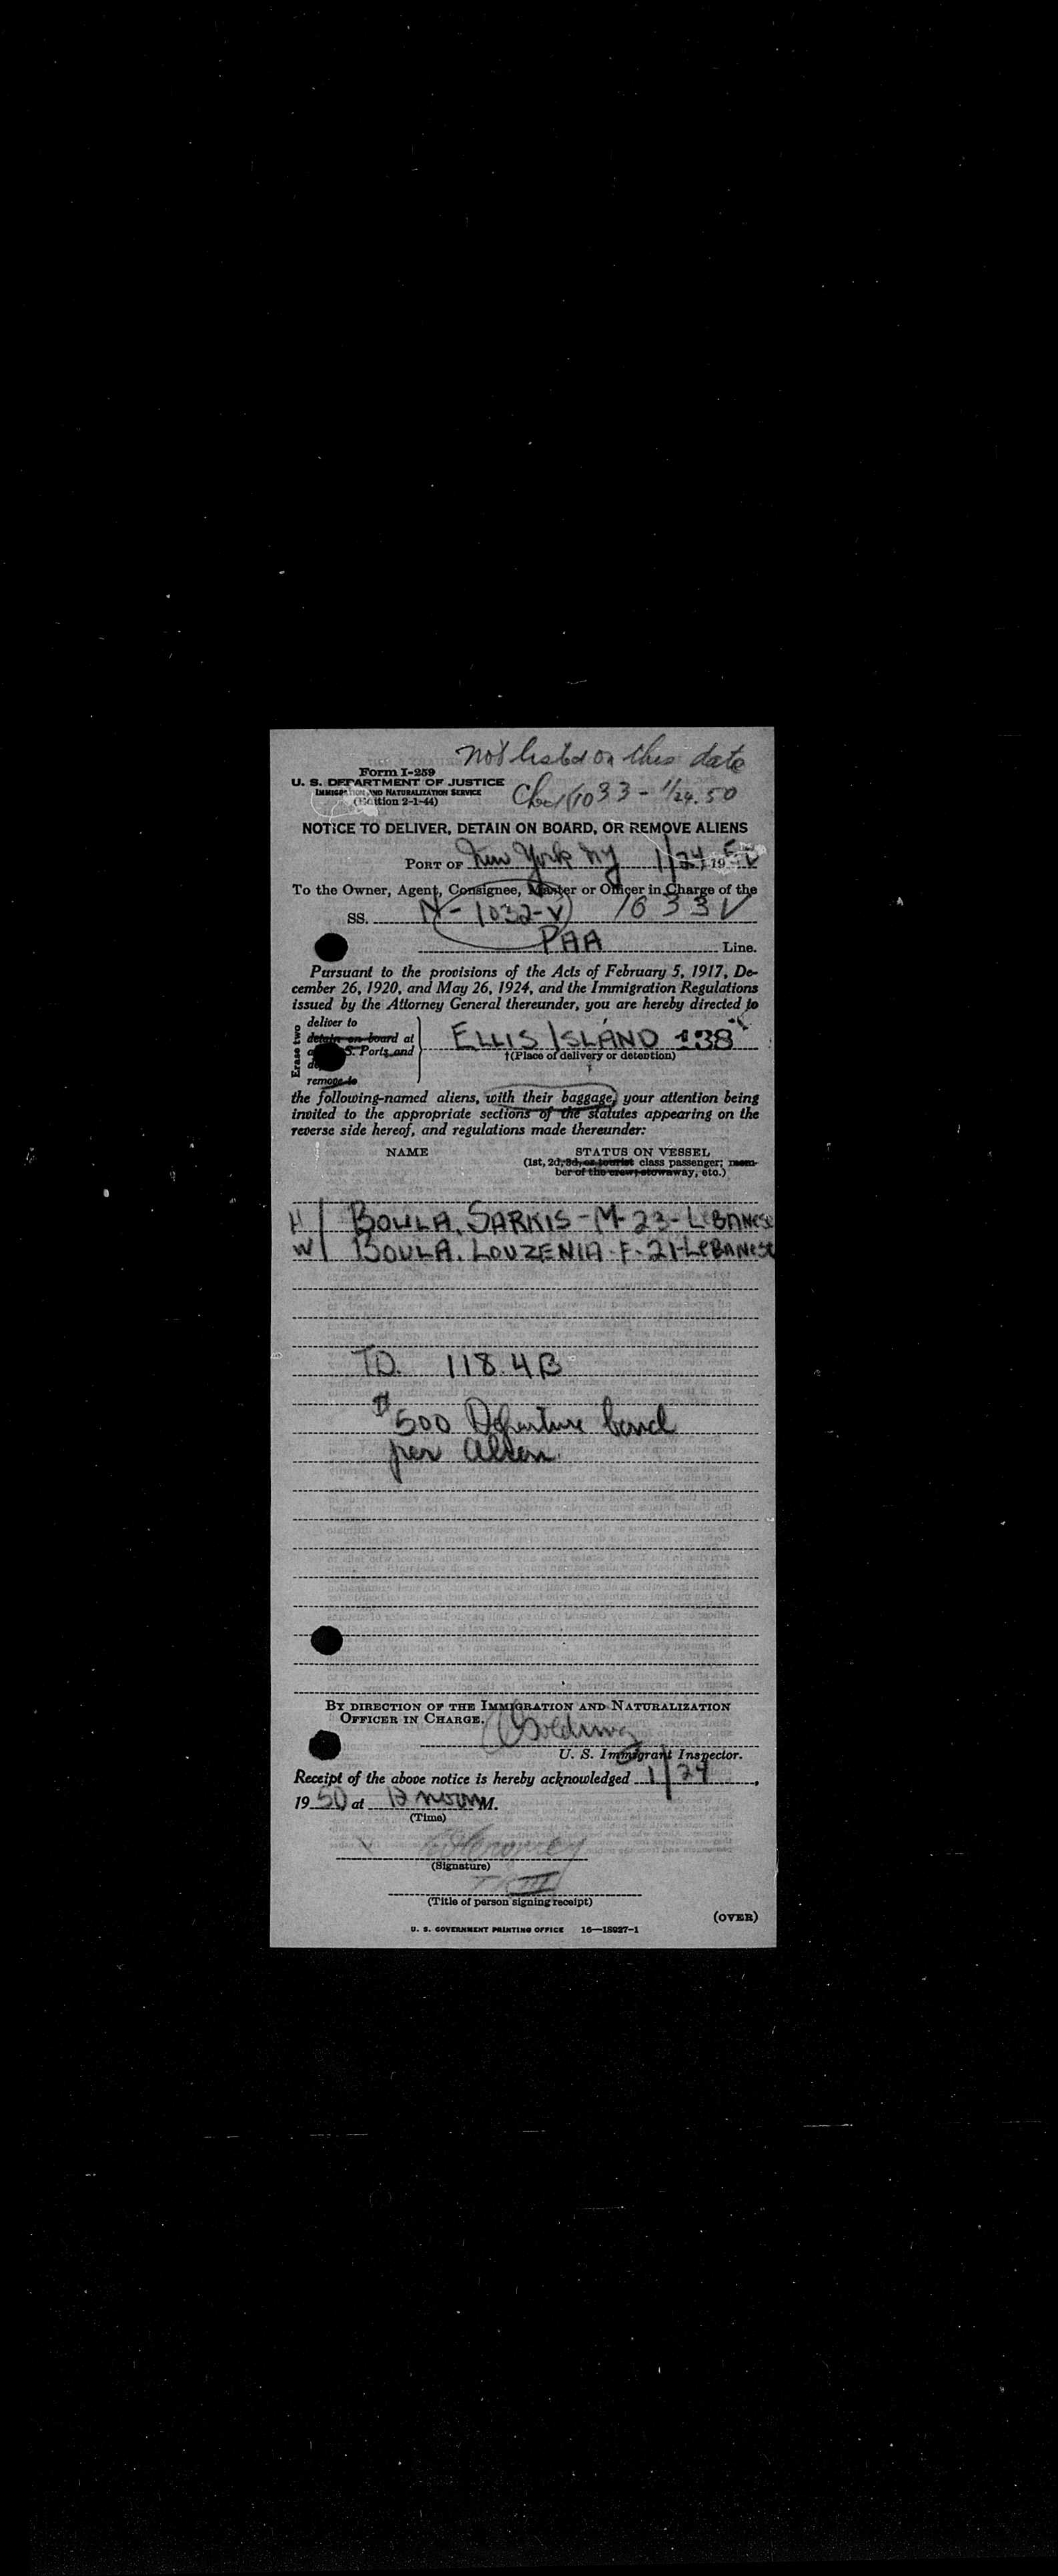 Not listed on this date
Form I-259
U. S. DEPARTMENT OF JUSTICE
IMMIGRATION AND NATURALIZATION SERVICE
(Edition 2-1-44)
1033 - 1/24.50
NOTICE TO DELIVER, DETAIN ON BOARD, OR REMOVE ALIENS
PORT OF New York NY 1/24, 1950
To the Owner, Agent, Consignee, Master or Officer in Charge of the
SS. N-1032-V 1033V
PAA Line.
Pursuant to the provisions of the Acts of February 5, 1917, De-
cember 26, 1920, and May 26, 1924, and the Immigration Regulations
issued by the Attorney General thereunder, you are hereby directed to
Erase two
deliver to
detain on board at
S. Ports and
remove to
ELLIS ISLAND 138
†(Place of delivery or detention)
the following-named aliens, with their baggage, your attention being
invited to the appropriate sections of the statutes appearing on the
reverse side hereof, and regulations made thereunder:
NAME STATUS ON VESSEL
(1st, 2d, 3d, or tourist class passenger; mem-
ber of the crew, stowaway, etc.)
H BOULA, SARKIS - M - 23 - LEBANESE
W BOULA, LOUZENIA - F - 21 - LEBANESE
T.D. 118.4B
$500 Departure bond
per Alien.
BY DIRECTION OF THE IMMIGRATION AND NATURALIZATION
OFFICER IN CHARGE.
U. S. Immigrant Inspector.
Receipt of the above notice is hereby acknowledged 1/24,
1950 at 12 noon M.
(Time)
(Signature)
(Title of person signing receipt)
(OVER)
U. S. GOVERNMENT PRINTING OFFICE 16—18927-1